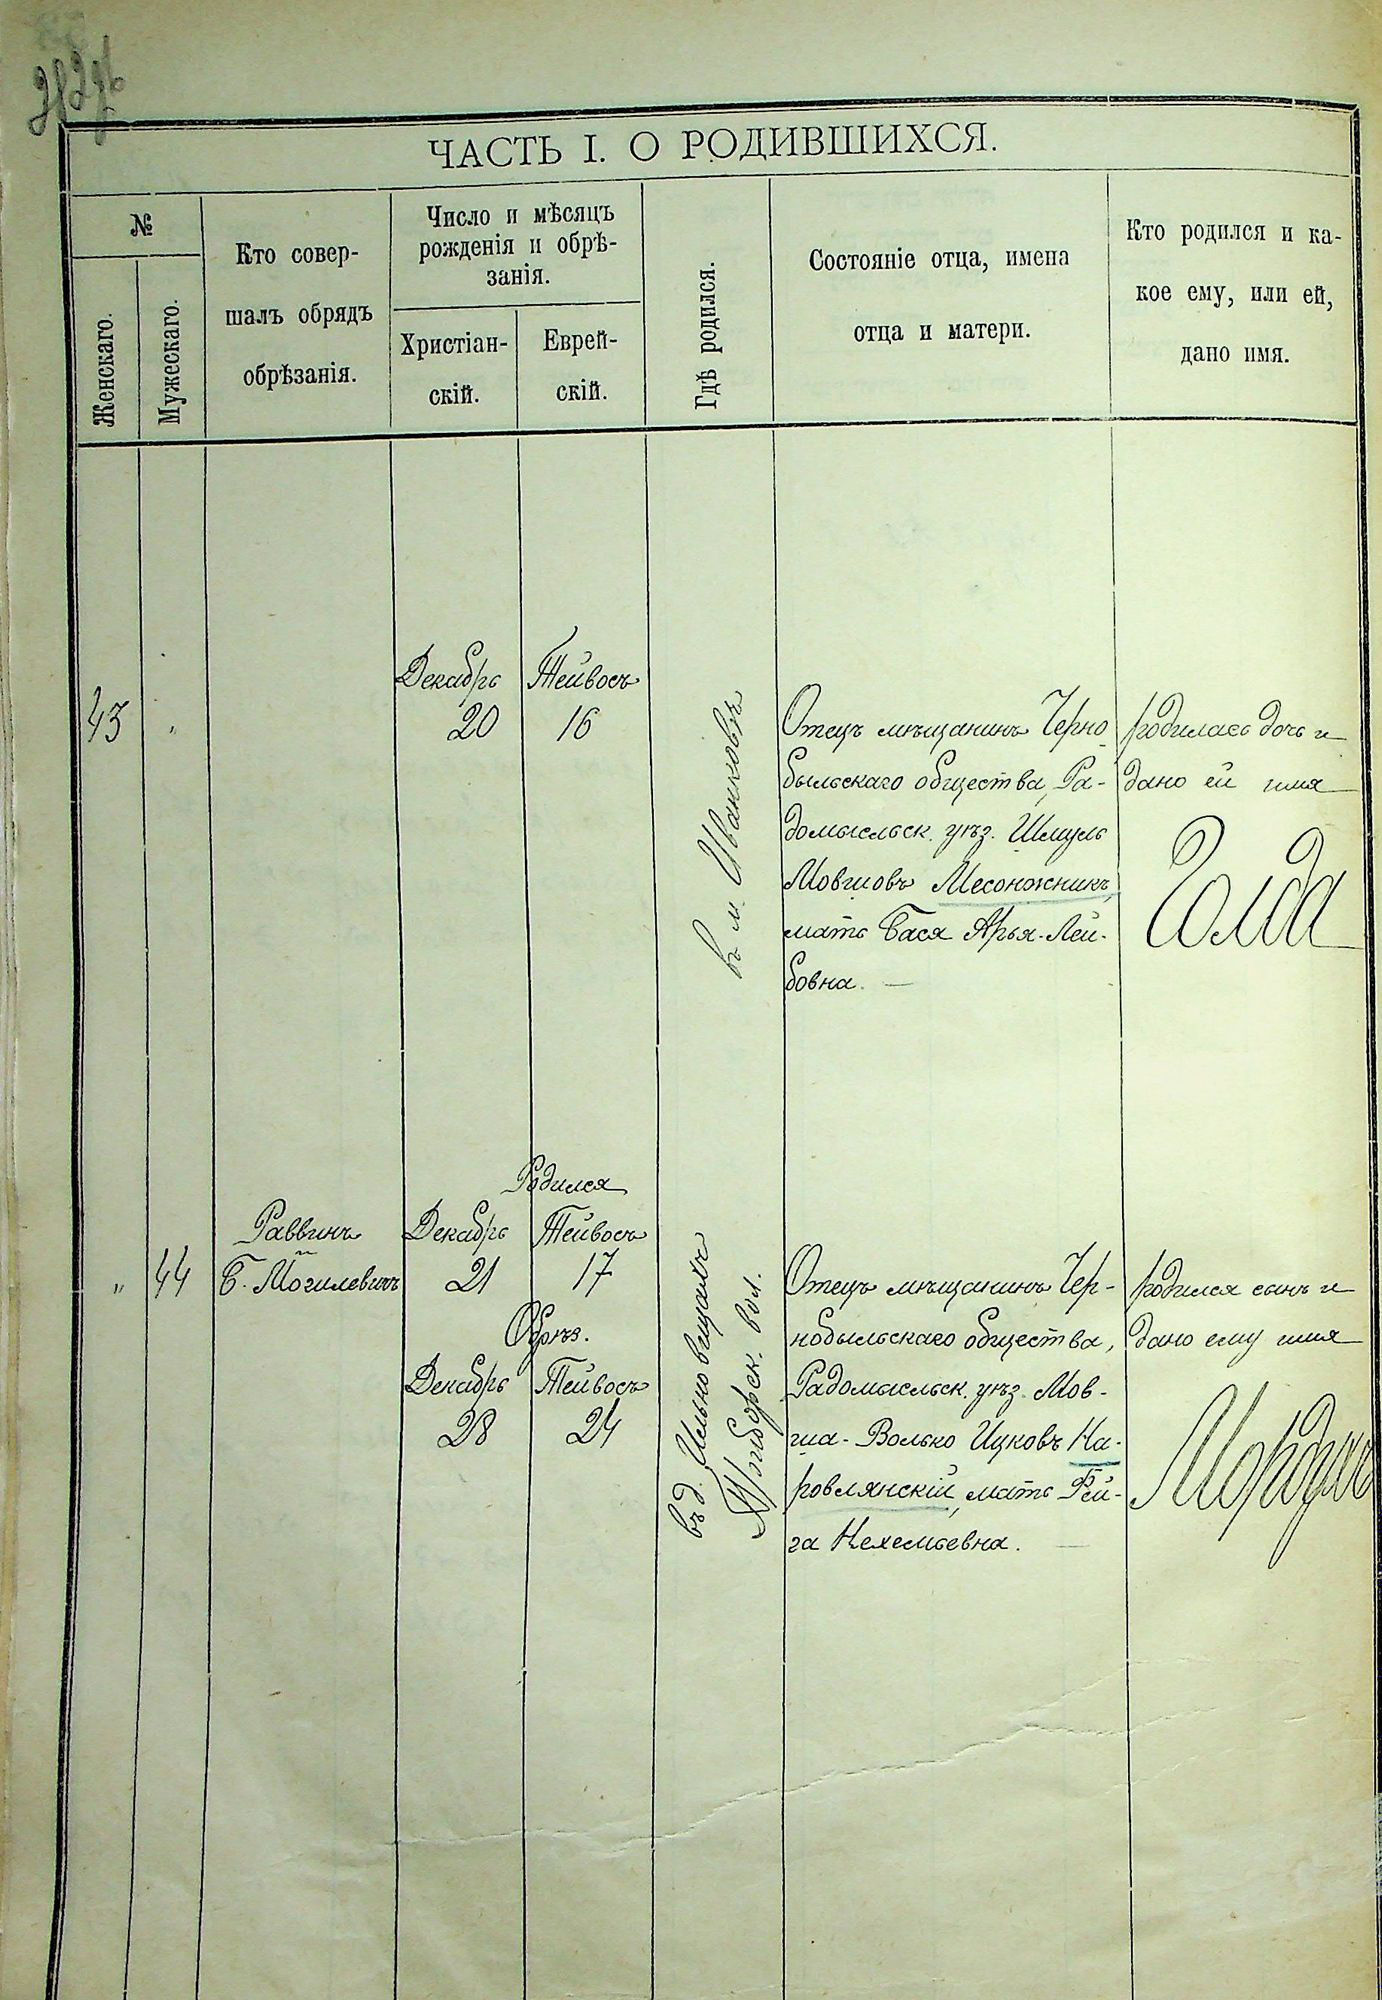 ЧАСТЬ I. О РОДИВШИХСЯ.
№
Женскаго.
Мужескаго.
Кто совер-
шалъ обрядъ
обрѣзанія.
Число и мѣсяцъ
рожденія и обрѣ-
занія.
Христіан-
скій.
Еврей-
скій.
Гдѣ родился.
Состояніе отца, имена
отца и матери.
Кто родился и ка-
кое ему, или ей,
дано имя.
43
Декабрь
20
Тейвосъ
16
въ м. Иванковѣ
Отецъ мѣщанинъ Черно
быльскаго общества, Ра-
домысльск. уѣз. Шмуль
Мовшовъ Месонжникъ,
мать Бася Арья-Лей-
бовна. —
родилась дочь и
дано ей имя
Голда
„ 44
Раввинъ
Б. Могилевичъ
Родился
Декабрь
21
Тейвосъ
17
Обрѣз.
Декабрь
28
Тейвосъ
24
въ д.
вол.
Отецъ мѣщанинъ Чер-
нобыльскаго общества,
Радомысльск. уѣз. Мов-
ша-Волько Ицковъ На-
ровлянскій, мать Рей-
за Нехемьевна. —
родился сынъ и
дано ему имя
Мордухъ